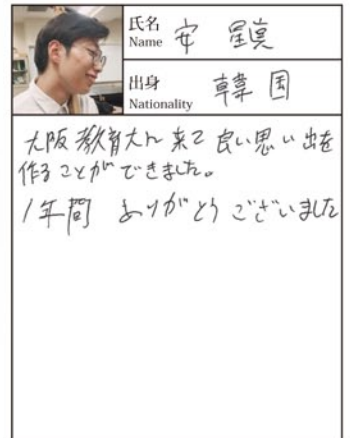 氏名 安 星眞
Name
出身 韓国
Nationality
大阪教育大に来て良い思い出を
作ることができました。
1年間 ありがとうございました